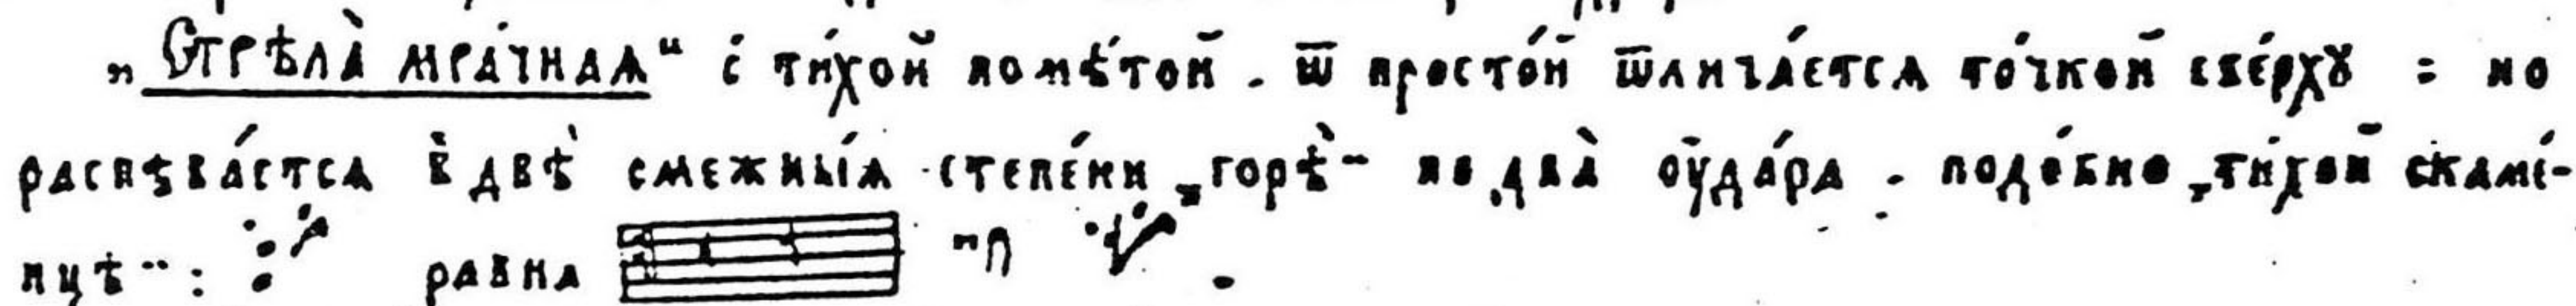 „Стрѣла̀ мра́чнаѧ“ с̾ ти́хой помѣ́той. ѿ просто́й ѿлича́етсѧ то́чкой све́рхꙋ : но
распѣва́етсѧ в̾ двѣ̀ сме́жныѧ степе́ни „горѣ̀“ по два̀ оу҆да́ра. подо́бно „ти́хой скамѣ́-
ицѣ“ : равна „п